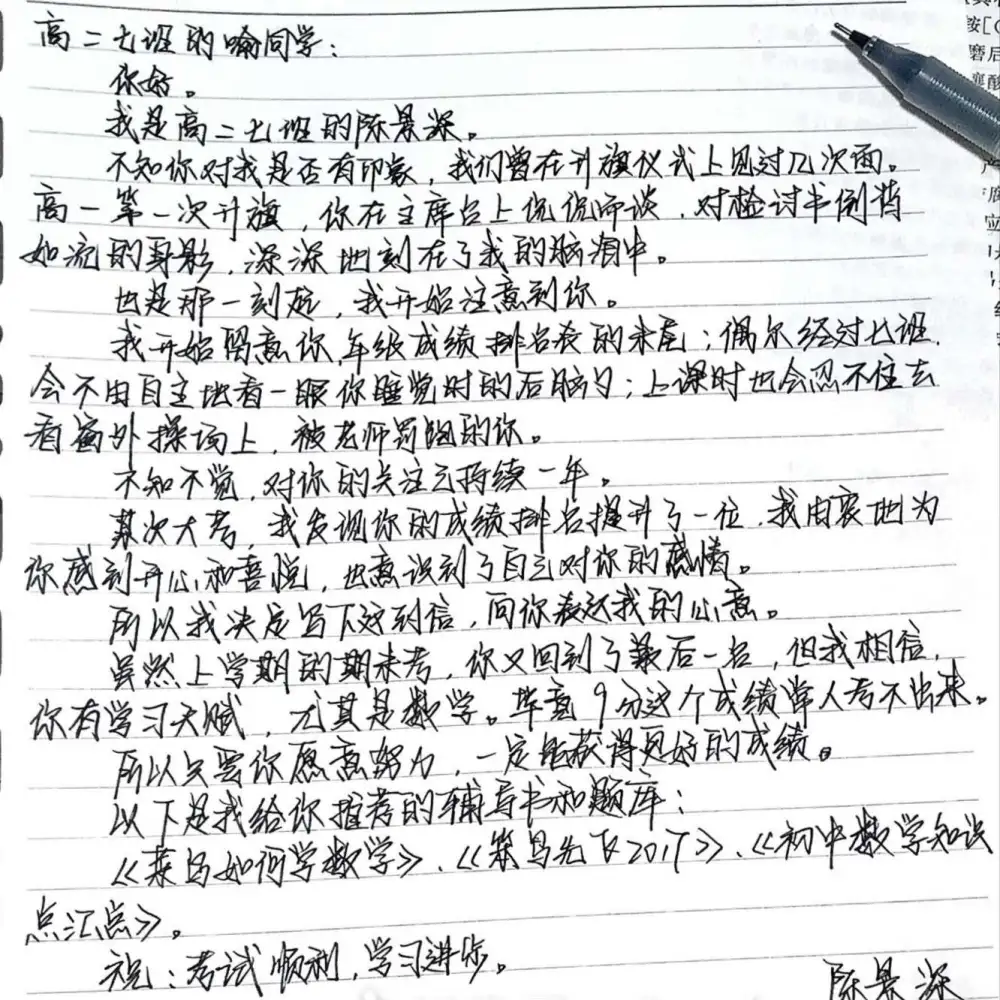 高二七班的喻同学:
你好。
我是高二七班的陈景深。
不知你对我是否有印象,我们曾在升旗仪式上见过几次面。
高一第一次升旗,你在主席台上侃侃而谈,对检讨书倒背
如流的身影,深深地刻在了我的脑海中。
也是那一刻起,我开始注意到你。
我开始留意你年级成绩排名表的末尾;偶尔经过七班,
会不由自主地看一眼你睡觉时的后脑勺;上课时也会忍不住去
看窗外操场上,被老师罚跑的你。
不知不觉,对你的关注已持续一年。
某次大考,我发现你的成绩排名提升了一位,我由衷地为
你感到开心和喜悦,也意识到了自己对你的感情。
所以我决定写下这封信,向你表达我的心意。
虽然上学期的期末考,你又回到了最后一名,但我相信,
你有学习天赋,尤其是数学。毕竟9分这个成绩常人考不出来。
所以只要你愿意努力,一定能获得更好的成绩。
以下是我给你推荐的辅导书和题库:
《菜鸟如何学数学》、《笨鸟先飞2017》、《初中数学知识
点汇点》。
祝:考试顺利,学习进步。
陈景深